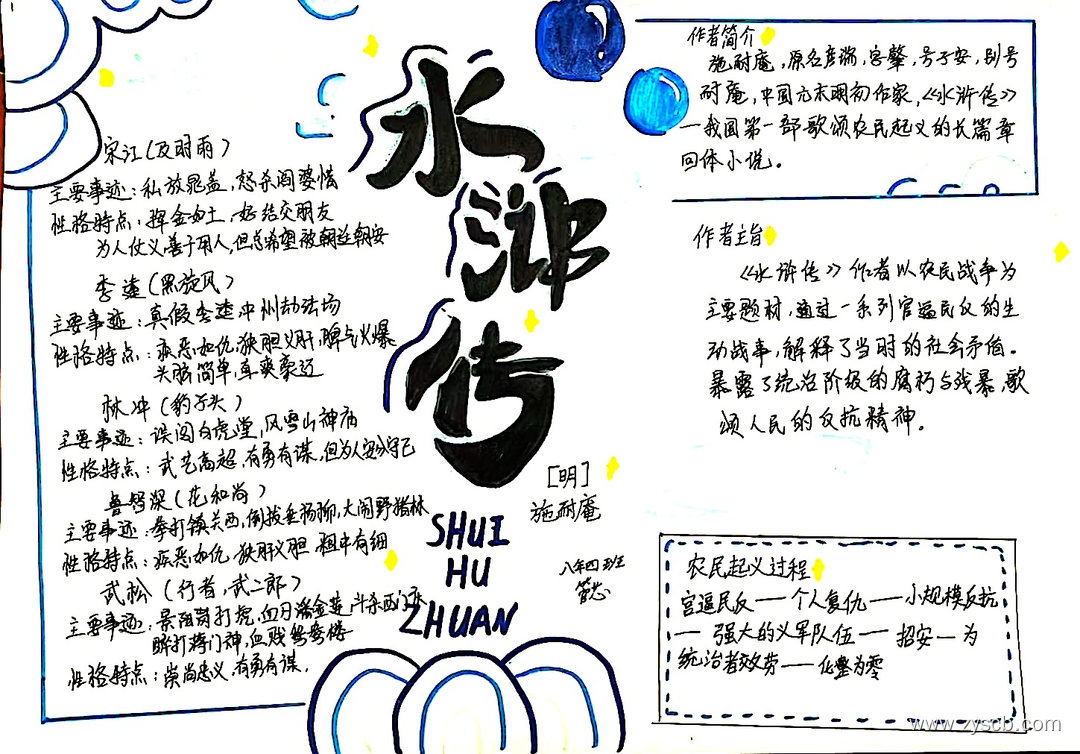 宋江(及时雨)
主要事迹：私放晁盖，怒杀阎婆惜
性格特点：挥金如土，好结交朋友
为人仗义，善于用人，但总希望被朝廷招安
李逵(黑旋风)
主要事迹：真假李逵，中州劫法场
性格特点：疾恶如仇，狭胆义肝，脾气火爆
头脑简单，直爽豪迈
林冲(豹子头)
主要事迹：误闯白虎堂，风雪山神庙
性格特点：武艺高超，有勇有谋，但为人安分守己
鲁智深(花和尚)
主要事迹：拳打镇关西，倒拔垂杨柳，大闹野猪林
性格特点：疾恶如仇，狭肝义胆，粗中有细
武松(行者，武二郎)
主要事迹：景阳岗打虎，血刃潘金莲，斗杀西门庆
醉打蒋门神，血贱鸳鸯楼
性格特点：崇尚忠义，有勇有谋.
水
浒
传
SHUI
HU
ZHUAN
[明]
施耐庵
八年四班
作者简介
施耐庵，原名彦端，字肇，号子安，别号
耐庵，中国元末明初作家，《水浒传》
一我国第一部歌颂农民起义的长篇章
回体小说。
作者主旨
《水浒传》作者以农民战争为
主要题材，通过一系列官逼民反的生
动战事，解释了当时的社会矛盾。
暴露了统治阶级的腐朽与残暴，歌
颂人民的反抗精神。
农民起义过程
官逼民反——个人复仇——小规模反抗
— 强大的义军队伍— 招安—为
统治者效劳——化整为零
www.zyscb.com